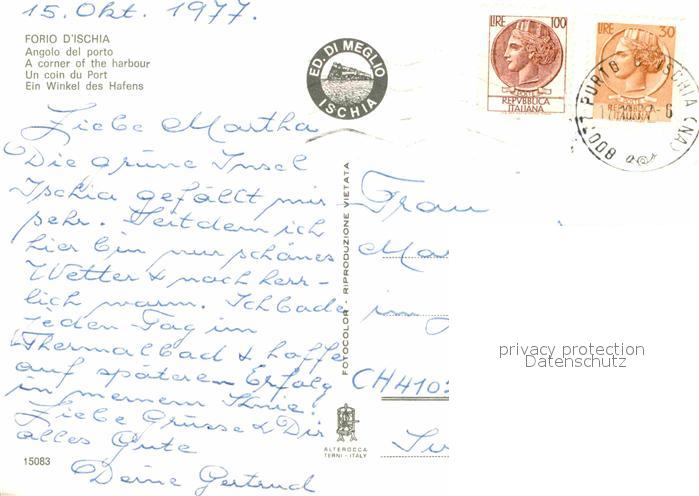 15. Okt. 1977.
FORIO D'ISCHIA
Angolo del porto
A corner of the harbour
Un coin du Port
Ein Winkel des Hafens
ED. DI MEGLIO
ISCHIA
LIRE 100
REPVBBLICA
ITALIANA
LIRE 30
REPVBBLICA
ITALIANA
80077 PORTO D'ISCHIA (NA)
Liebe Martha
Die grüne Insel
Ischia gefällt mir
sehr. Seitdem ich
hier bin nur schönes
Wetter & noch herr-
lich warm. Ich bade
jeden Tag im
Thermalbad & hoffe
auf späteren Erfolg
in meinem Knie.
Liebe Grüsse & Dir
alles Gute
Deine Gertrud
15083
FOTOCOLOR - RIPRODUZIONE VIETATA
ALTEROCCA
TERNI - ITALY
Frau
Mar
im
CH 410
privacy protection
Datenschutz